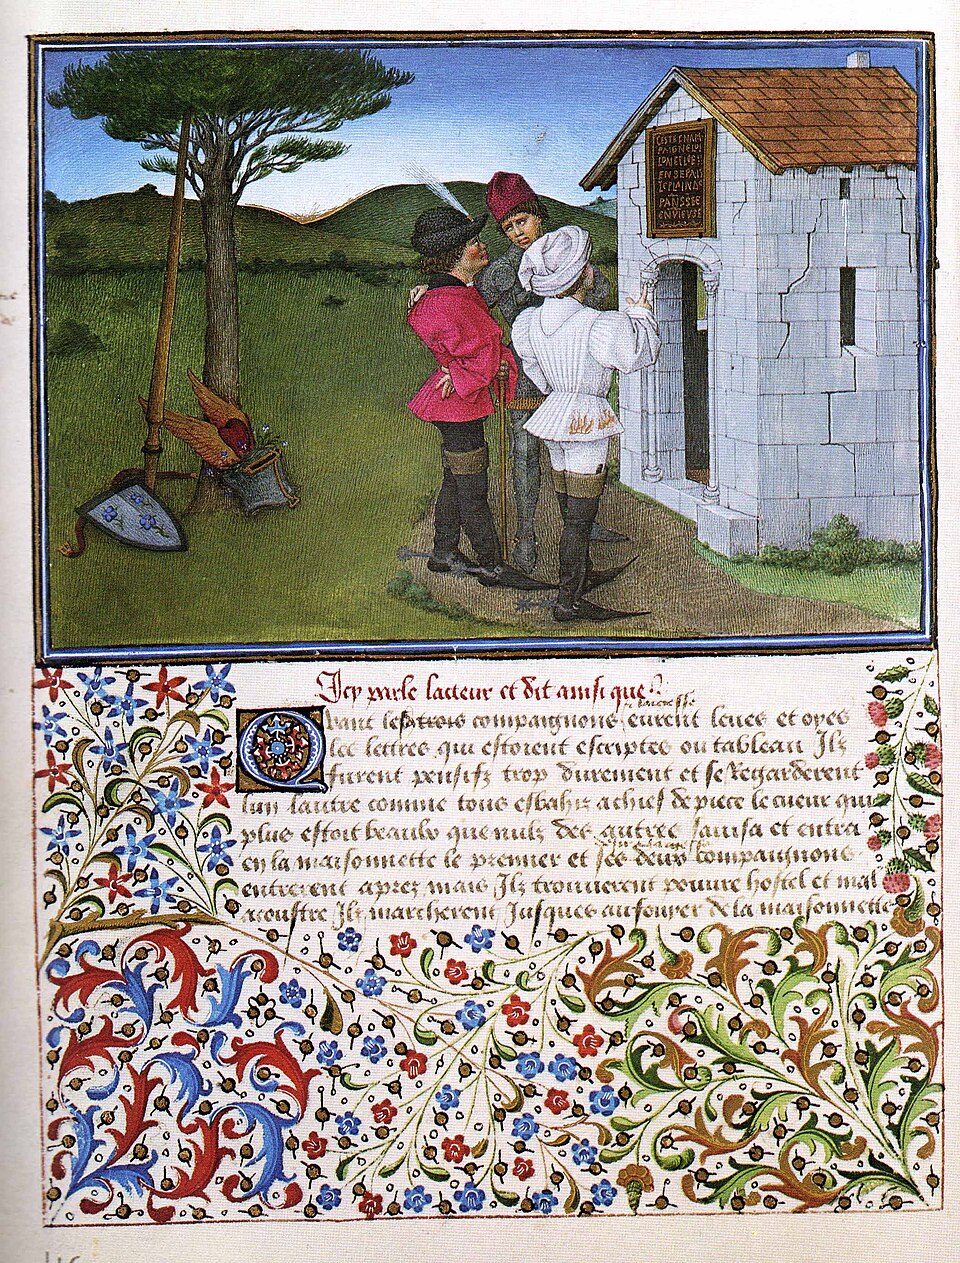 CESTE CHAM
PAIGNE LOI
LONC TIEUL
EN SE PALI
PANSSEE
ENVIEUSE
Icy parle lacteur et dit ainsi que
Quant les trois compaignons eurent leues et oyes
les lettres qui estoient escriptes ou tableau Ilz
furent pensifz trop durement et se Regarderent
lun lautre comme tous esbahiz achief de piece le cueur qui
plus estoit beaulx que nulz des autres savisa et entra
en la maisonnette le premier et ses deux compaignons
entrerent aprez mais Ilz trouverent pouvre hostel et mal
acoustre Ilz marcherent Jusques au fouyer de la maisonnette